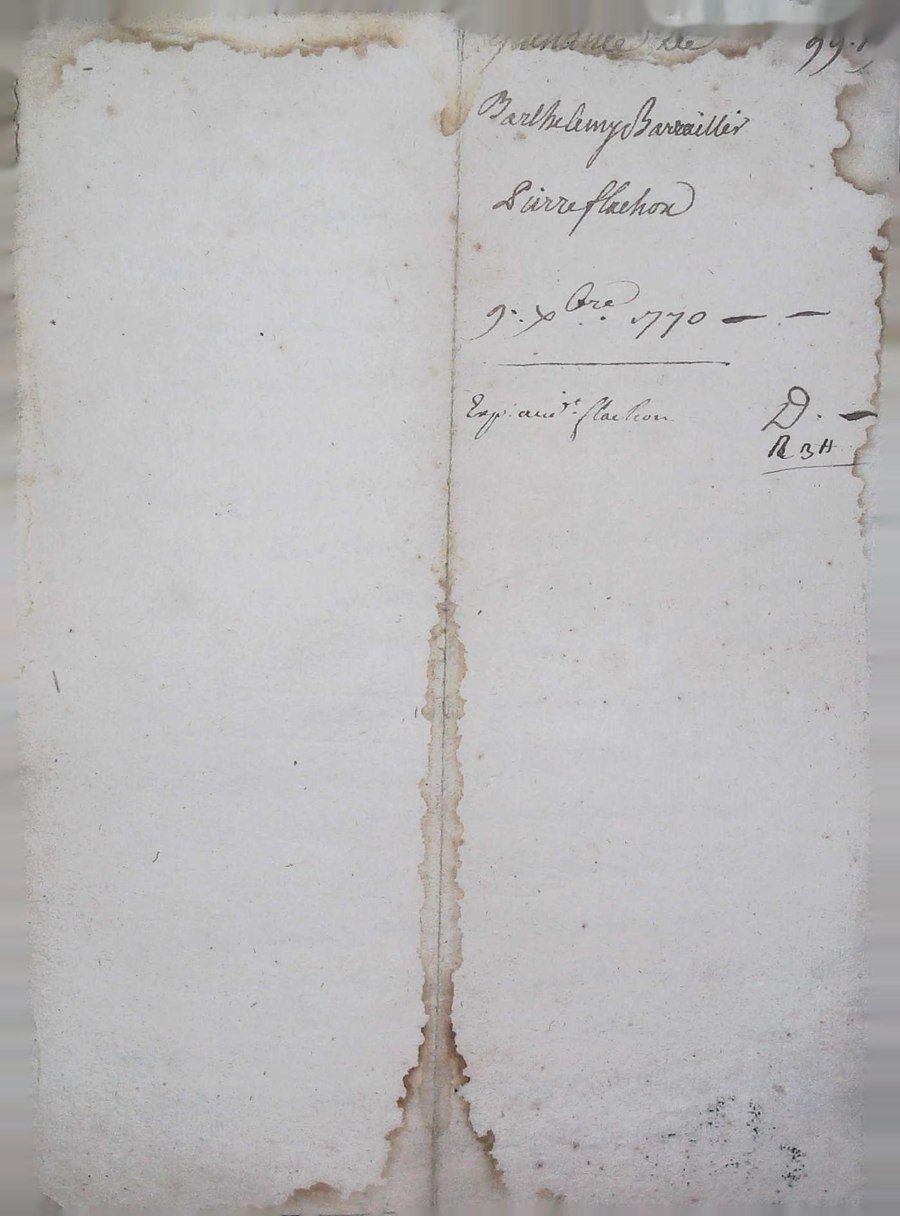 de 99.
Barthelemy Barraillier
Pierre flachon
9.. Xbre 1770 — —
Exp: aud.t flachon D. —
R 3H